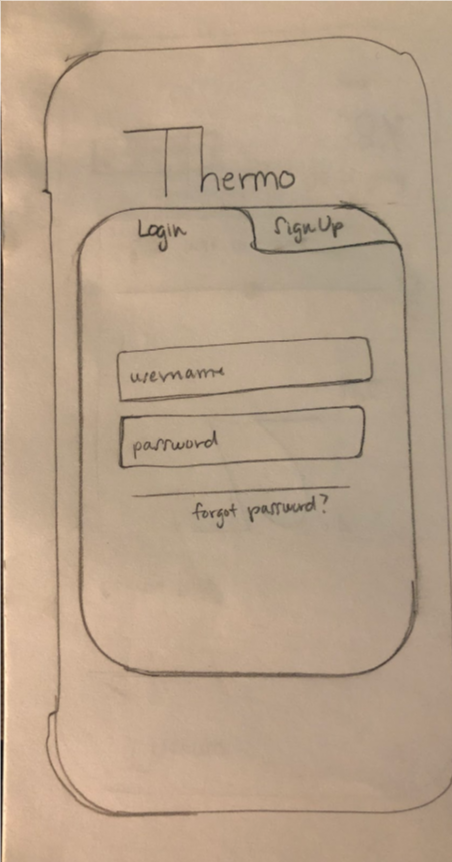 Thermo
Login SignUp
username
password
forgot password?